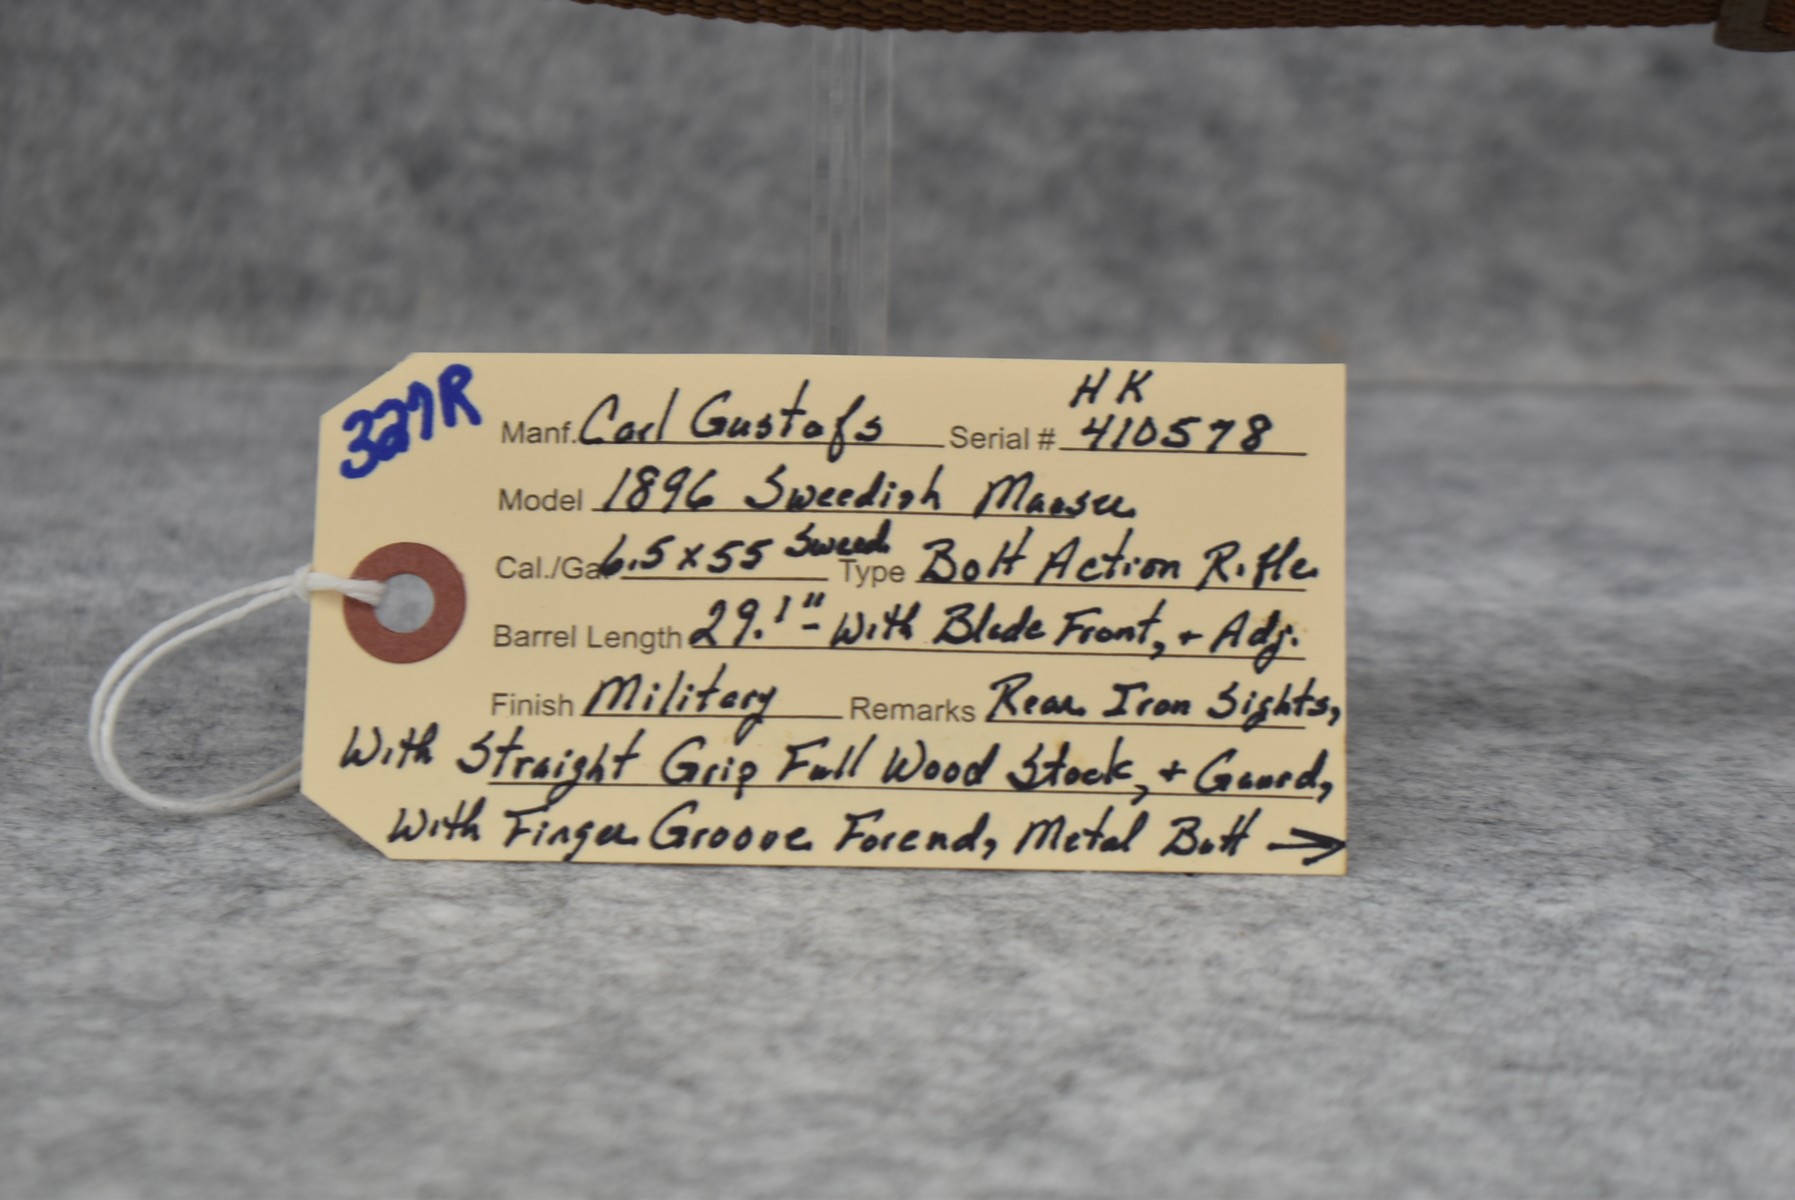 327R
Manf. Carl Gustafs Serial # HK 410578
Model 1896 Sweedish Mauser
Cal./Ga. 6.5x55 Sweed. Type Bolt Action Rifle
Barrel Length 29.1" - With Blade Front, + Adj.
Finish Military Remarks Rear Iron Sights,
With Straight Grip Full Wood Stock, + Gaurd,
With Finger Groove Forend, Metal Butt →